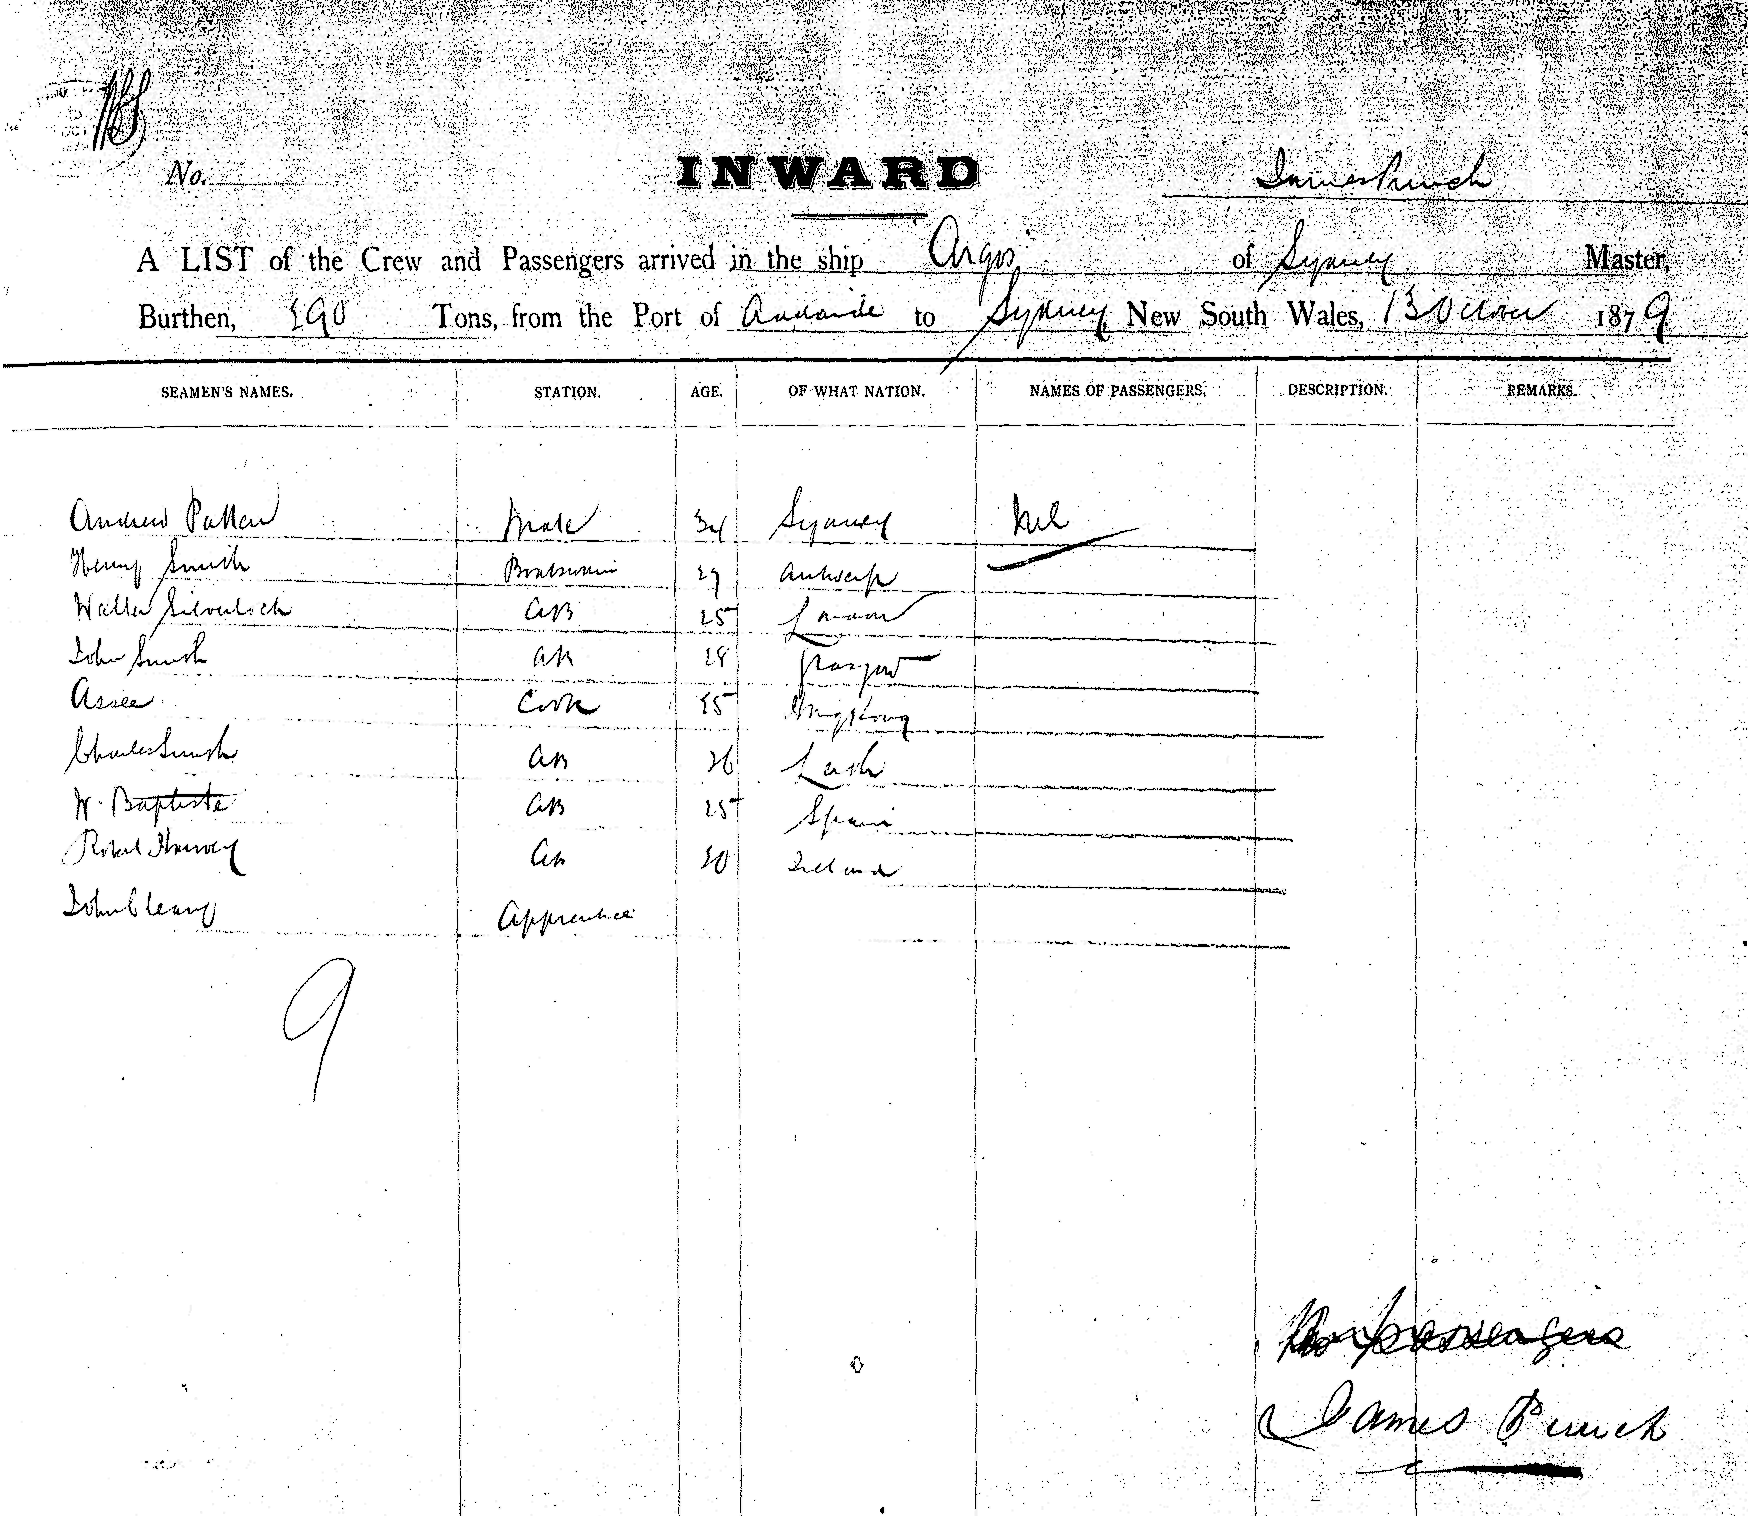 No.
INWARD
James Punch
A LIST of the Crew and Passengers arrived in the ship Argos of Sydney Master,
Burthen, 390 Tons, from the Port of to Sydney New South Wales, 13 October 1879
SEAMEN'S NAMES. STATION. AGE. OF WHAT NATION. NAMES OF PASSENGERS. DESCRIPTION. REMARKS.
Andrew Patten Mate 34 Sydney Nil
Henry Smith Boatswain 29 Antwerp
Walter AB 25 London
John Smith AB 28 Glasgow
Assee Cook 35 Hongkong
Charles Smith AB 26 Leith
W. Baptiste AB 25 Spain
Robert Harvey AB 30 Ireland
John Cleary Apprentice
9
No passengers
James Punch